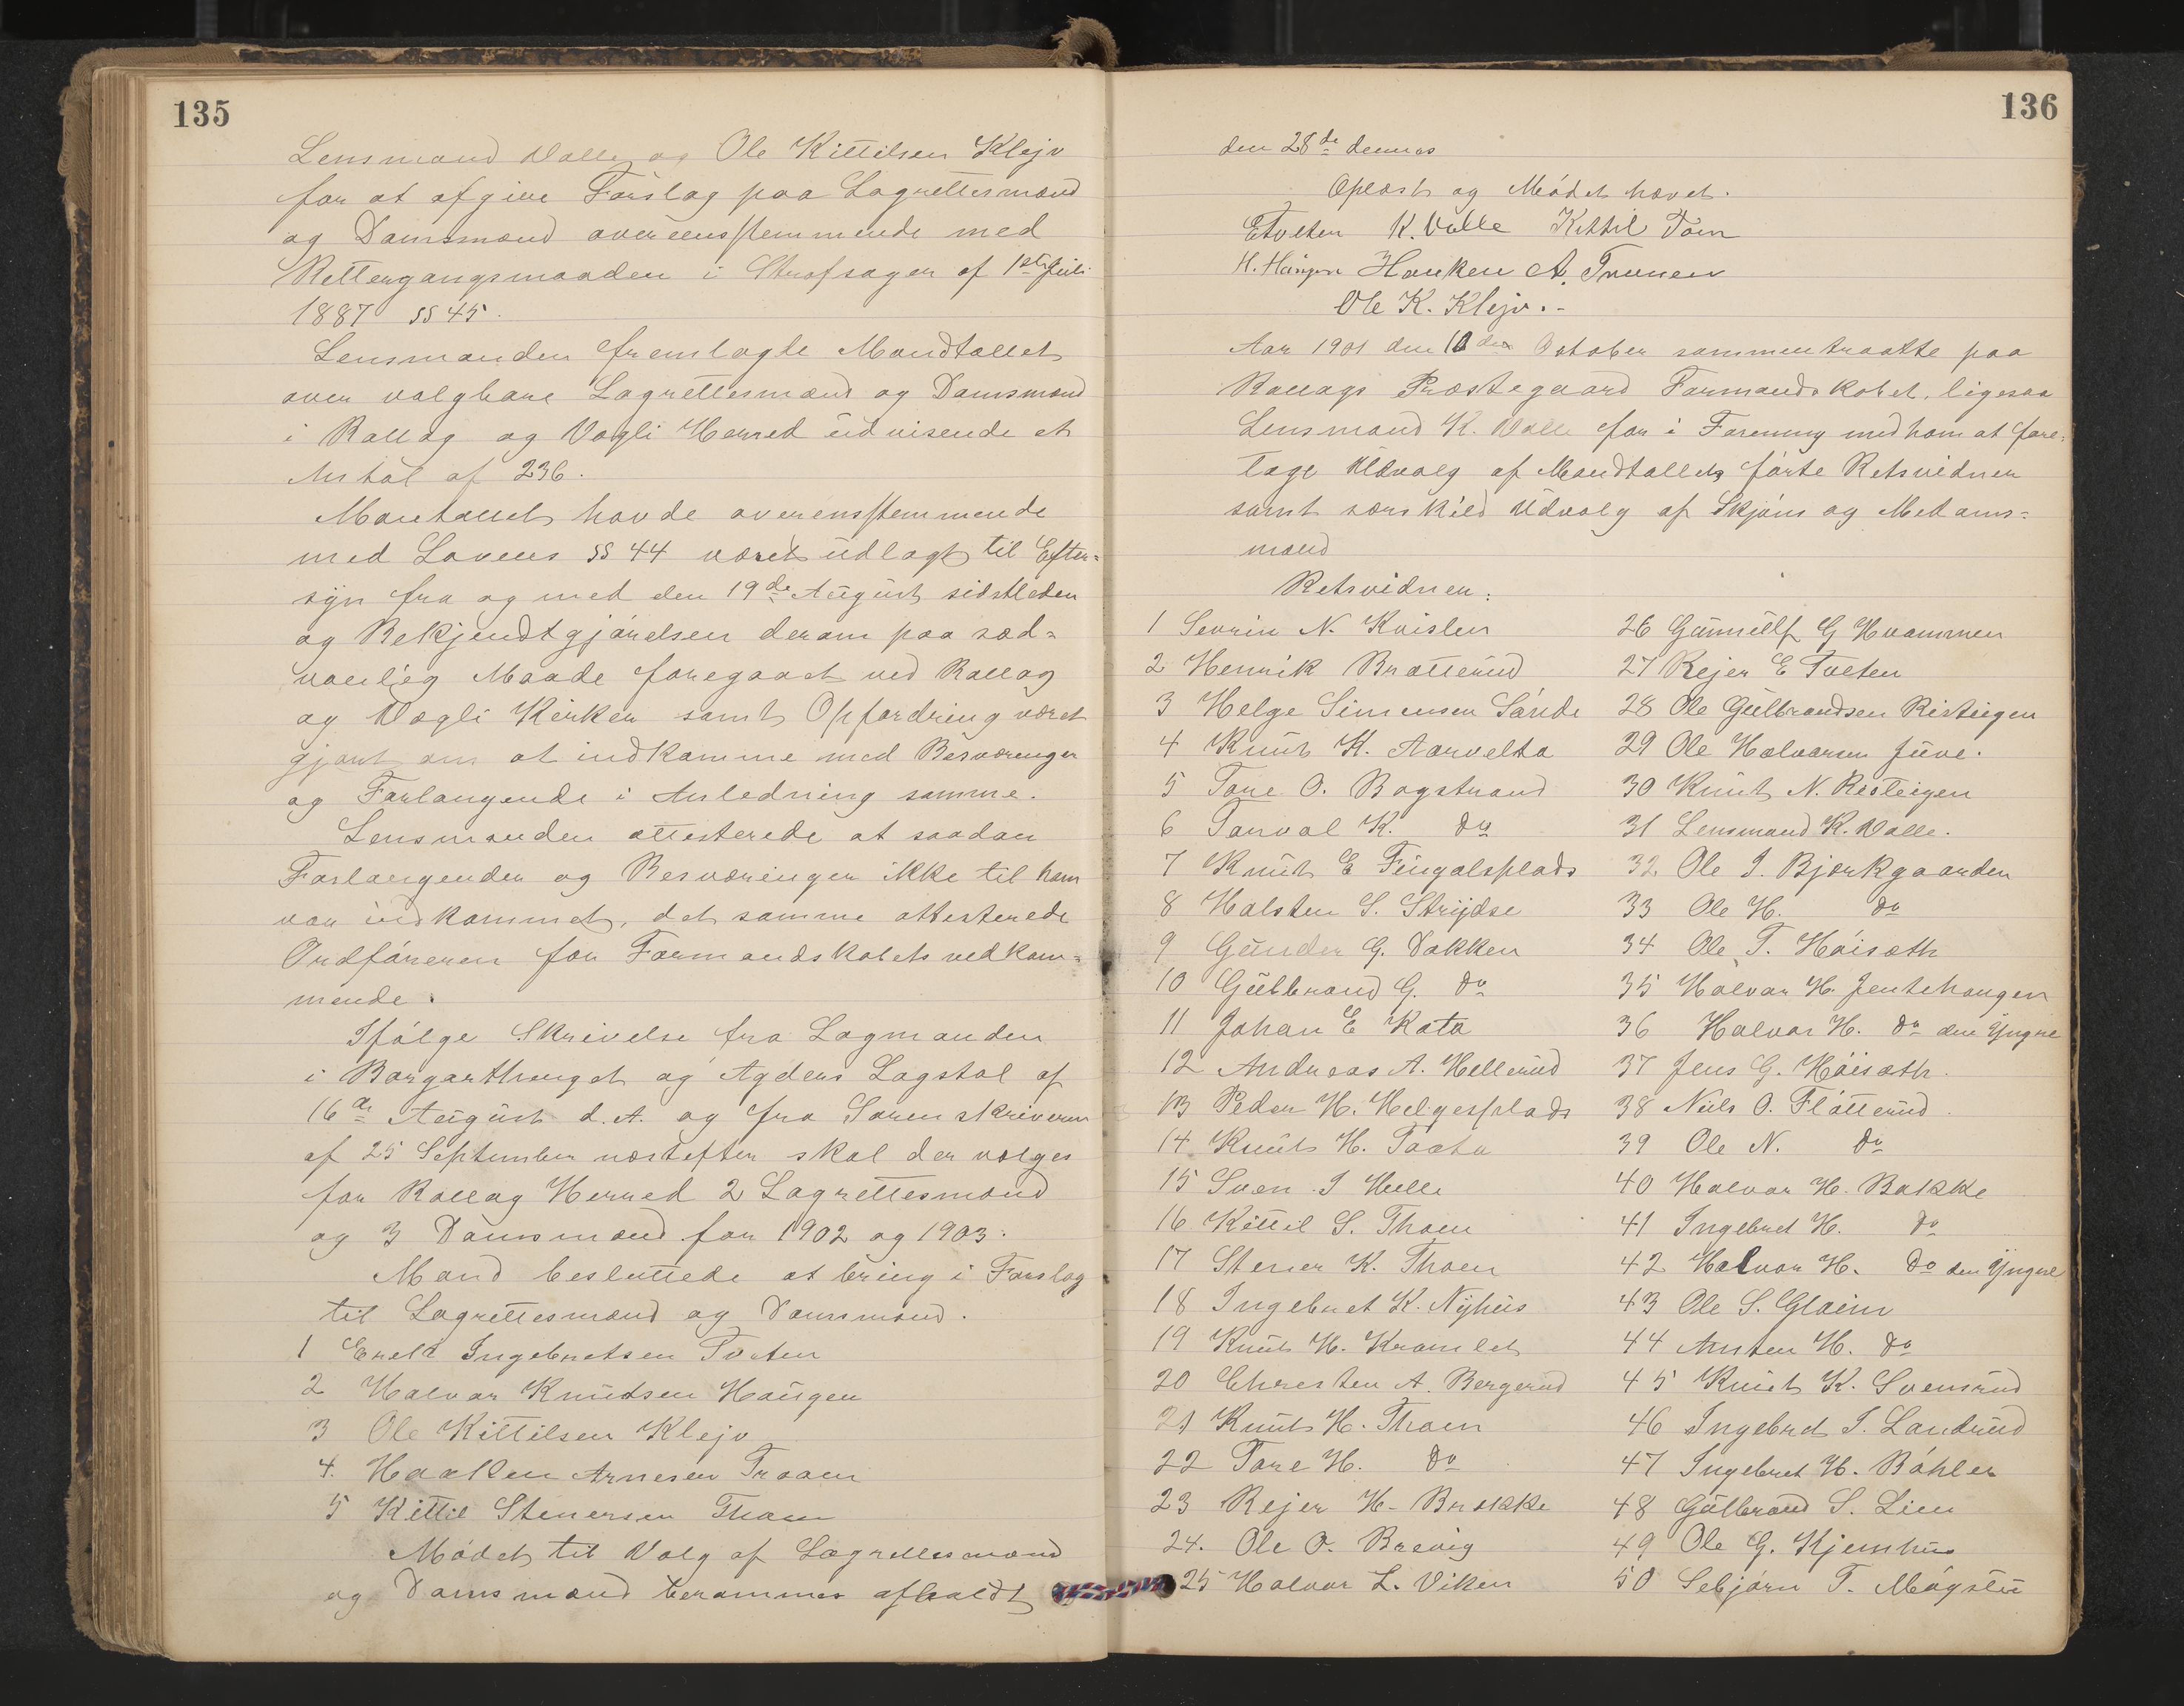 135
Lensmand Valle og Ole Kittilsen Klejv
for at afgive Forslag paa Lagrettesmænd
og Domsmænd overeensstemmende med
Rettergangsmaaden i Strafsager af 1ste Juli
1887 §§ 45.
Lensmanden fremlagte Mandtallet
over valgbare Lagrettesmænd og Domsmænd
i Rollag og Vægli Herred udvisende et
Antal af 236.
Mantallet havde overensstemmende
med Lovens §§ 44 været udlagt til Efter=
syn fra og med den 19de August sidstleden
og Bekjendtgjørelsen derom paa sæd=
vanlig Maade foregaaet ved Rollag
og Vægli Kirker samt Opfordring været
gjort om at indkomme med Besværinger
og Forlangende i Anledning samme.
Lensmanden attesterede at saadan
Forlangender og Besværinger ikke til ham
var indkommet, det samme attesterede
Ordføreren for Formandskabets vedkom=
mende.
Ifølge Skrivelse fra Lagmanden
i Borgarthinget og Agders Lagstol af
16de August d. A. og fra Sorenskriveren
af 25 September næstefter skal der vælges
for Rollag Herred 2 Lagrettesmænd
og 3 Domsmænd for 1902 og 1903.
Mand besluttede at bring i Forslag
til Lagrettesmænd og Domsmænd.
1 Enelt Ingebretsen Tveten
2 Halvor Knudsen Haugen
3 Ole Kittilsen Klejv
4. Haaken Arnesen Traaen
5 Kittil Stenersen Thoen
Mødet til Valg af Lagrettesmænd
og Domsmænd berammes afholdt
136
den 28de dennes
Oplæst og Mødet hævet.
ETveten K. Valle Kittil Toen
H. Haugen Haaken A. Traaen
Ole K. Klejv.-
Aar 1901 den 10den October sammentraatte paa
Rollags Præstegaard Formandskabet, ligesaa
Lensmand K. Valle for i Forening med ham at fore=
tage Udvalg af Mandtallets førte Retsvidner
samt særskild Udvalg af Skjøns og Medoms=
mænd
Retsvidner:
1 Sevrin N. Kvislen
2 Henrik Bratterud
3 Helge Simensen Sønde
4 Knut K. Aarvelta
5 Tore O. Bogstrand
6 Torval K. do
7 Knut E Fingalsplads
8 Halsten S. Strydse
9 Gunder G. Dokken
10 Gulbrand G. do
11 Johan E Kata
12 Andreas A. Hellerud
13 Peder H. Helgesplads
14 Knut H. Taata
15 Sven J Helle
16 Kittil S. Thoen
17 Stener K. Thoen
18 Ingebret K. Nyhus
19 Knut H. Kramlet
20 Chresten A. Bergerud
21 Knut H. Thoen
22 Tore H. do
23 Rejer H. Brekke
24. Ole O. Brevig
25 Halvor L. Viken
26 Gunnulf G Hvammen
27 Rejer E Tveten
28 Ole Gulbrandsen Risteigen
29 Ole Halvorsen Juve.
30 Knut N. Risteigen
31 Lensmand K. Valle.
32 Ole J. Bjørkgaarden
33 Ole H. do
34 Ole T. Høisæth
35 Halvor H. Jentehaugen
36 Halvor H. do den Yngre
37 Jens G. Høisæth.
38 Nils O. Fløtterud.
39 Ole N. do
40 Halvor H. Bakke
41 Ingebret H. do
42 Halvor H. do den Yngre
43 Ole S. Glaim
44 Ansten H. do
45 Knut K. Svensrud
46 Ingebret J. Landrud
47 Ingebret H. Bøhler
48 Gulbrand S. Lien
49 Ole G. Kjemhus
50 Sebjørn T. Møgstu